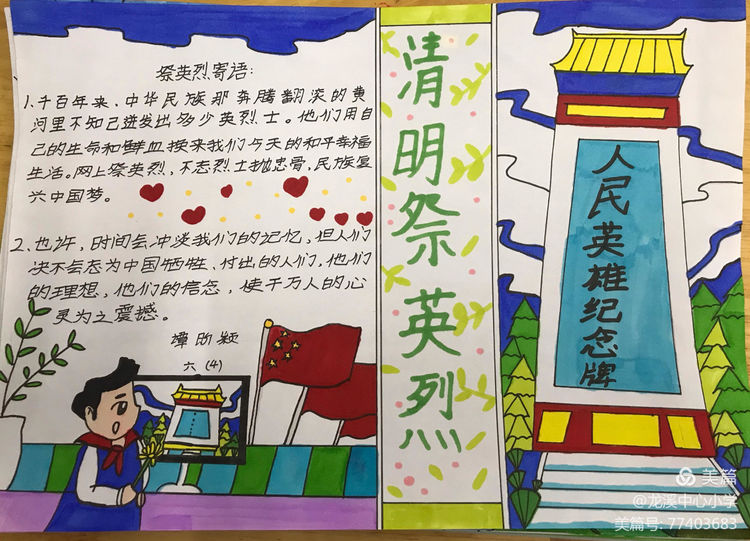 祭英烈寄语:
1.千百年来、中华民族那奔腾翻滚的黄
河里不知己迸发出多少英烈士。他们用自
己的生命和鲜血、换来我们今天的和平幸福
生活。网上祭英烈、不忘烈士抛忠骨、民族复
兴中国梦。
2.也许，时间会冲淡我们的记忆，但人们
决不会忘为中国牺牲、付出的人们、他们
的理想，他们的信念，使千万人的心
灵为之震撼。
六 (4)
清明祭英烈
人民英雄纪念牌
美篇
@龙溪中心小学
美篇号: 77403683